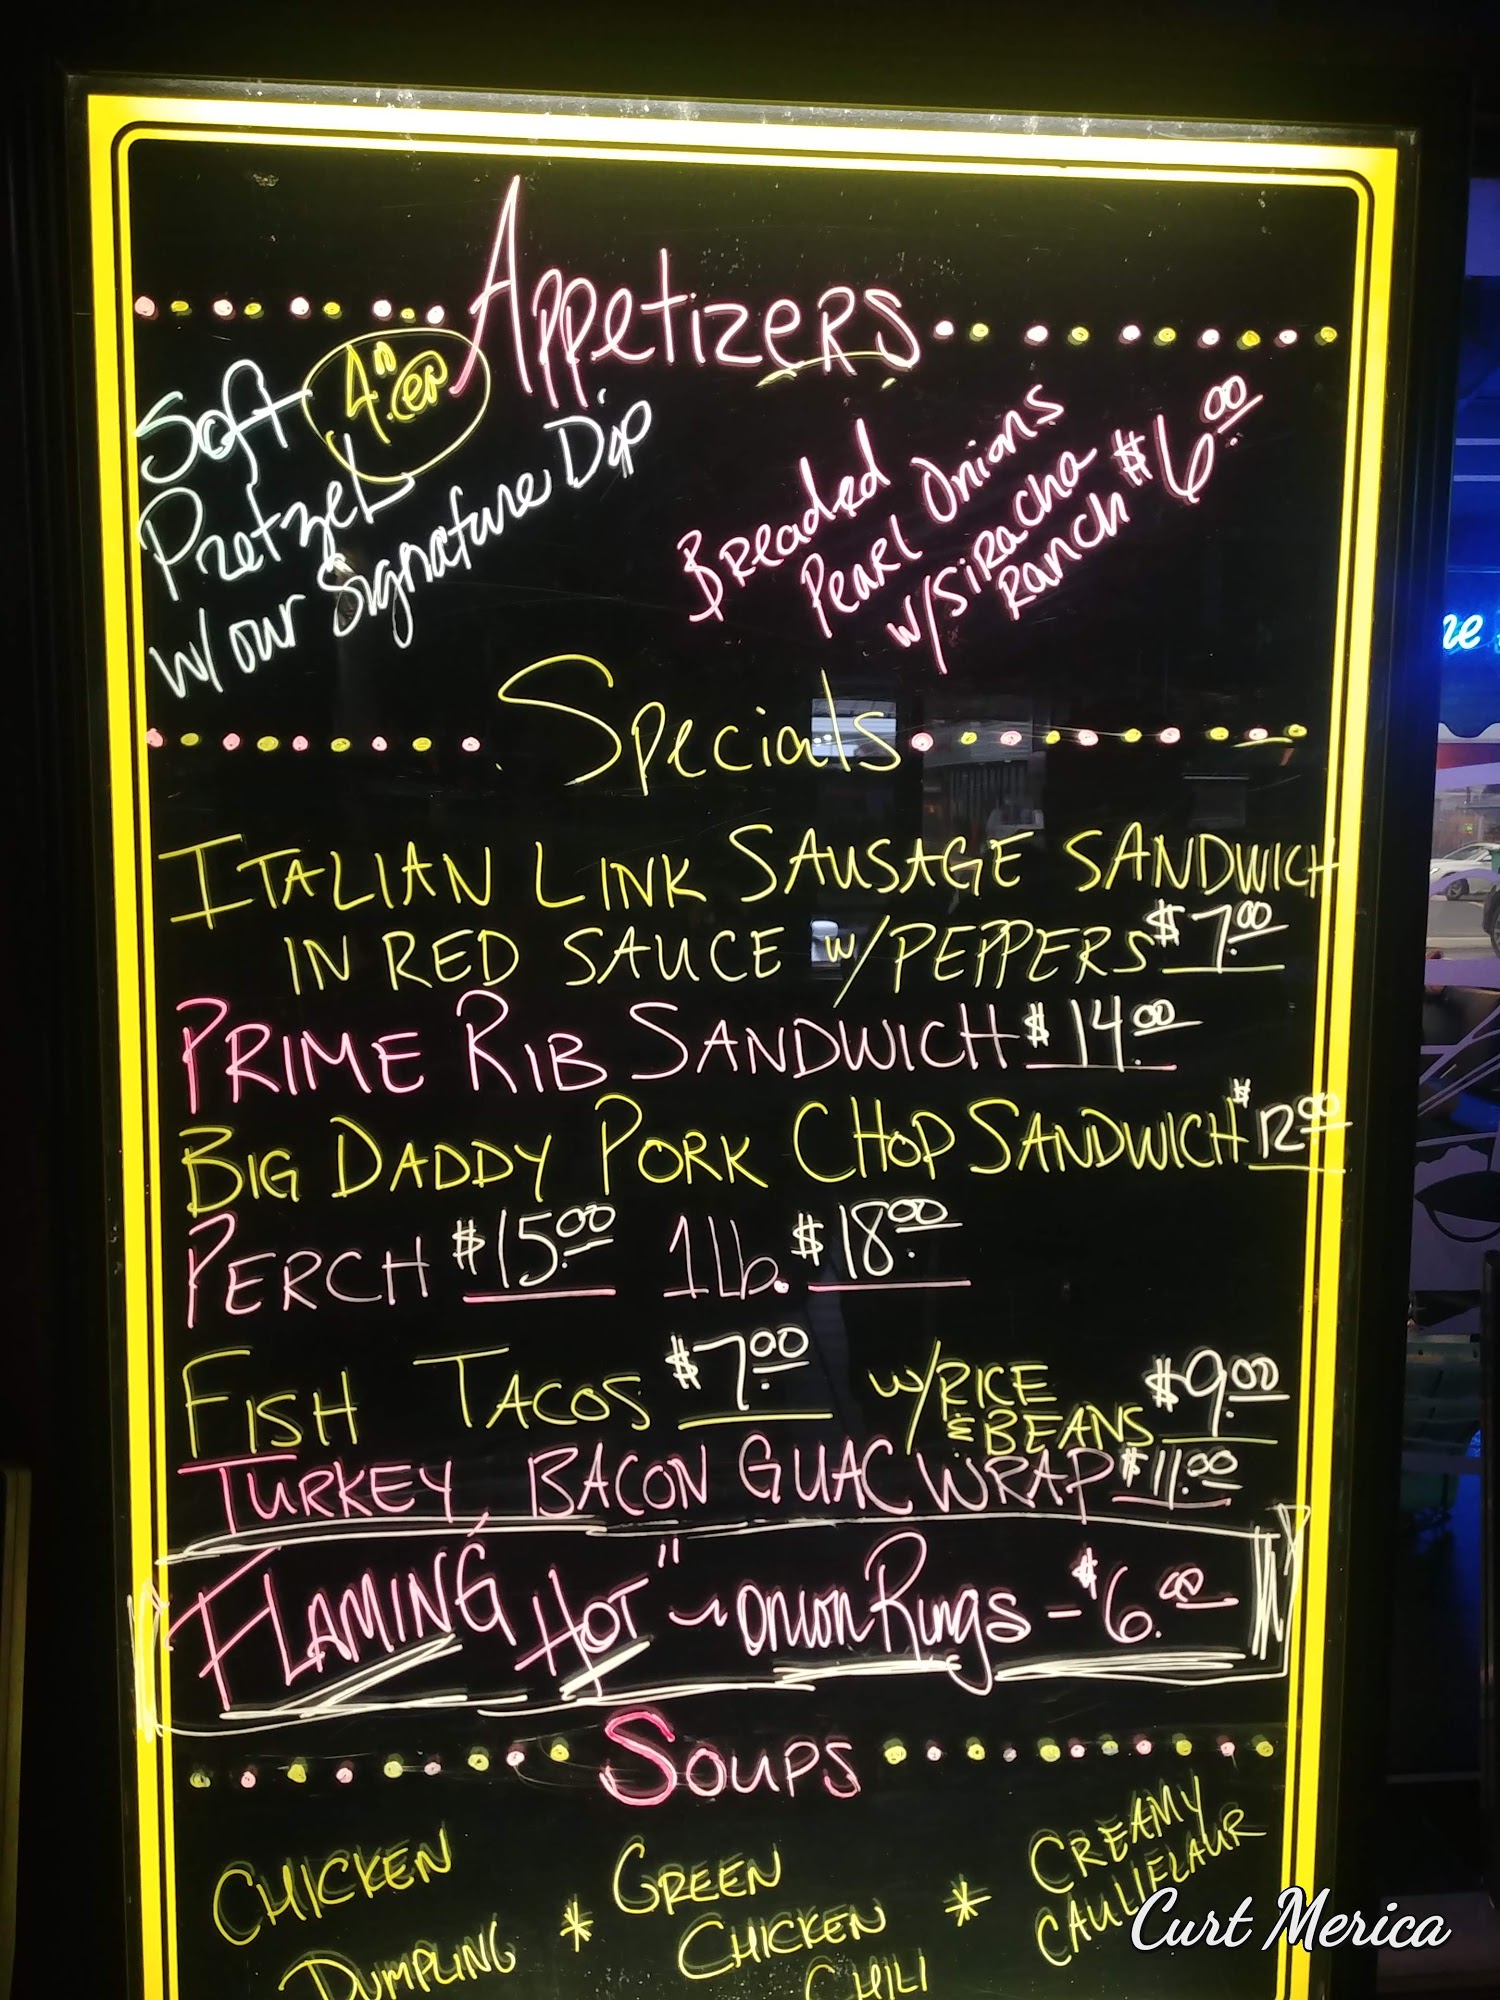 Appetizers
Soft
Pretzel
w/ our Signature Dip
Breaded
Pearl Onions
w/ Siracha
Ranch $6.00
Specials
ITALIAN LINK SAUSAGE SANDWICH
IN RED SAUCE w/ PEPPERS $7.00
PRIME RIB SANDWICH $14.00
BIG DADDY PORK CHOP SANDWICH $12.00
PERCH $15.00 1 lb. $18.00
FISH TACOS $7.00 w/ RICE
& BEANS $9.00
TURKEY, BACON GUAC WRAP $11.00
"FLAMING HOT" ~ Onion Rings - $6.00
SOUPS
CHICKEN
DUMPLING
*
GREEN
CHICKEN
CHILI
*
CREAMY
CAULIFLAUR
Curt Merica